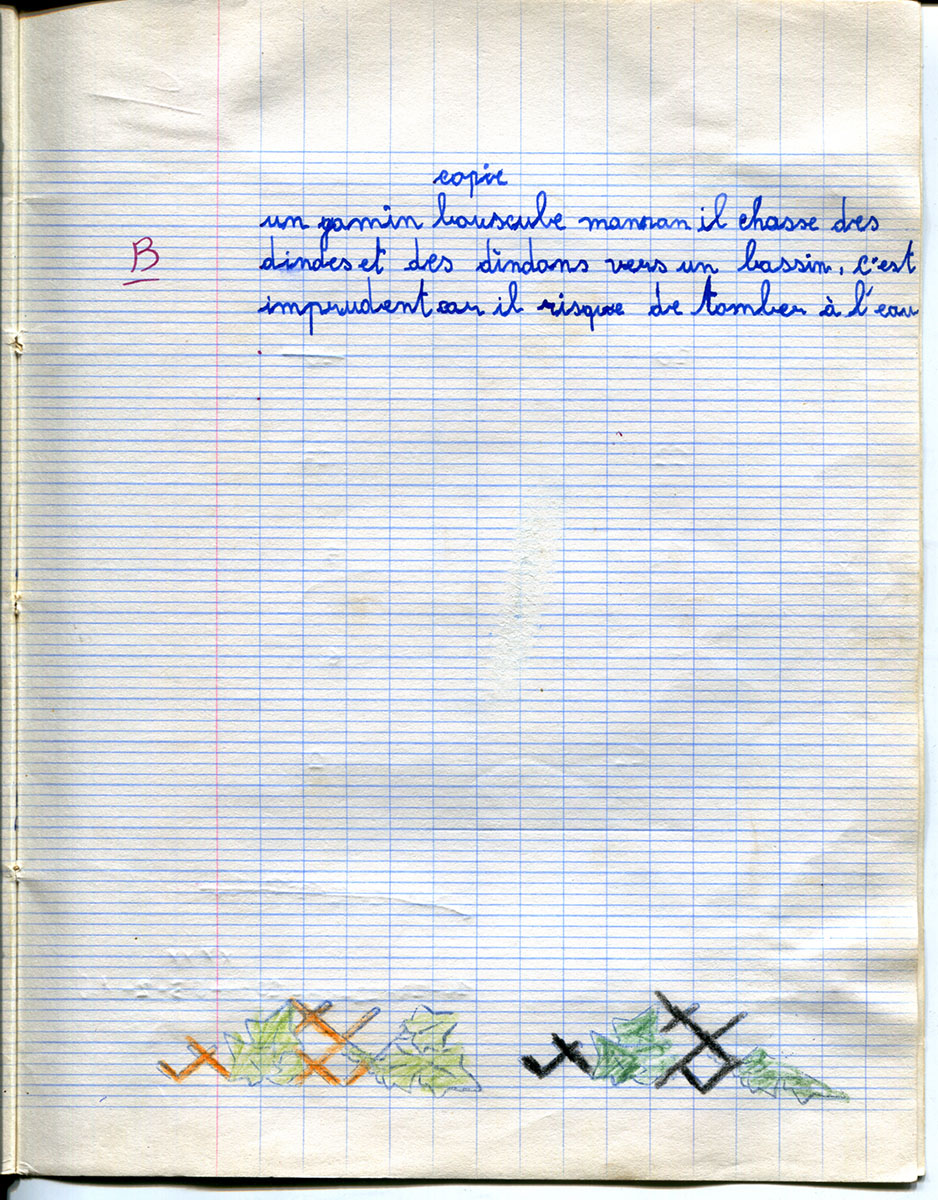 copie
un gamin bouscule maman il chasse des
B
dindes et des dindons vers un bassin, c'est
imprudent car il risque de tomber à l'eau